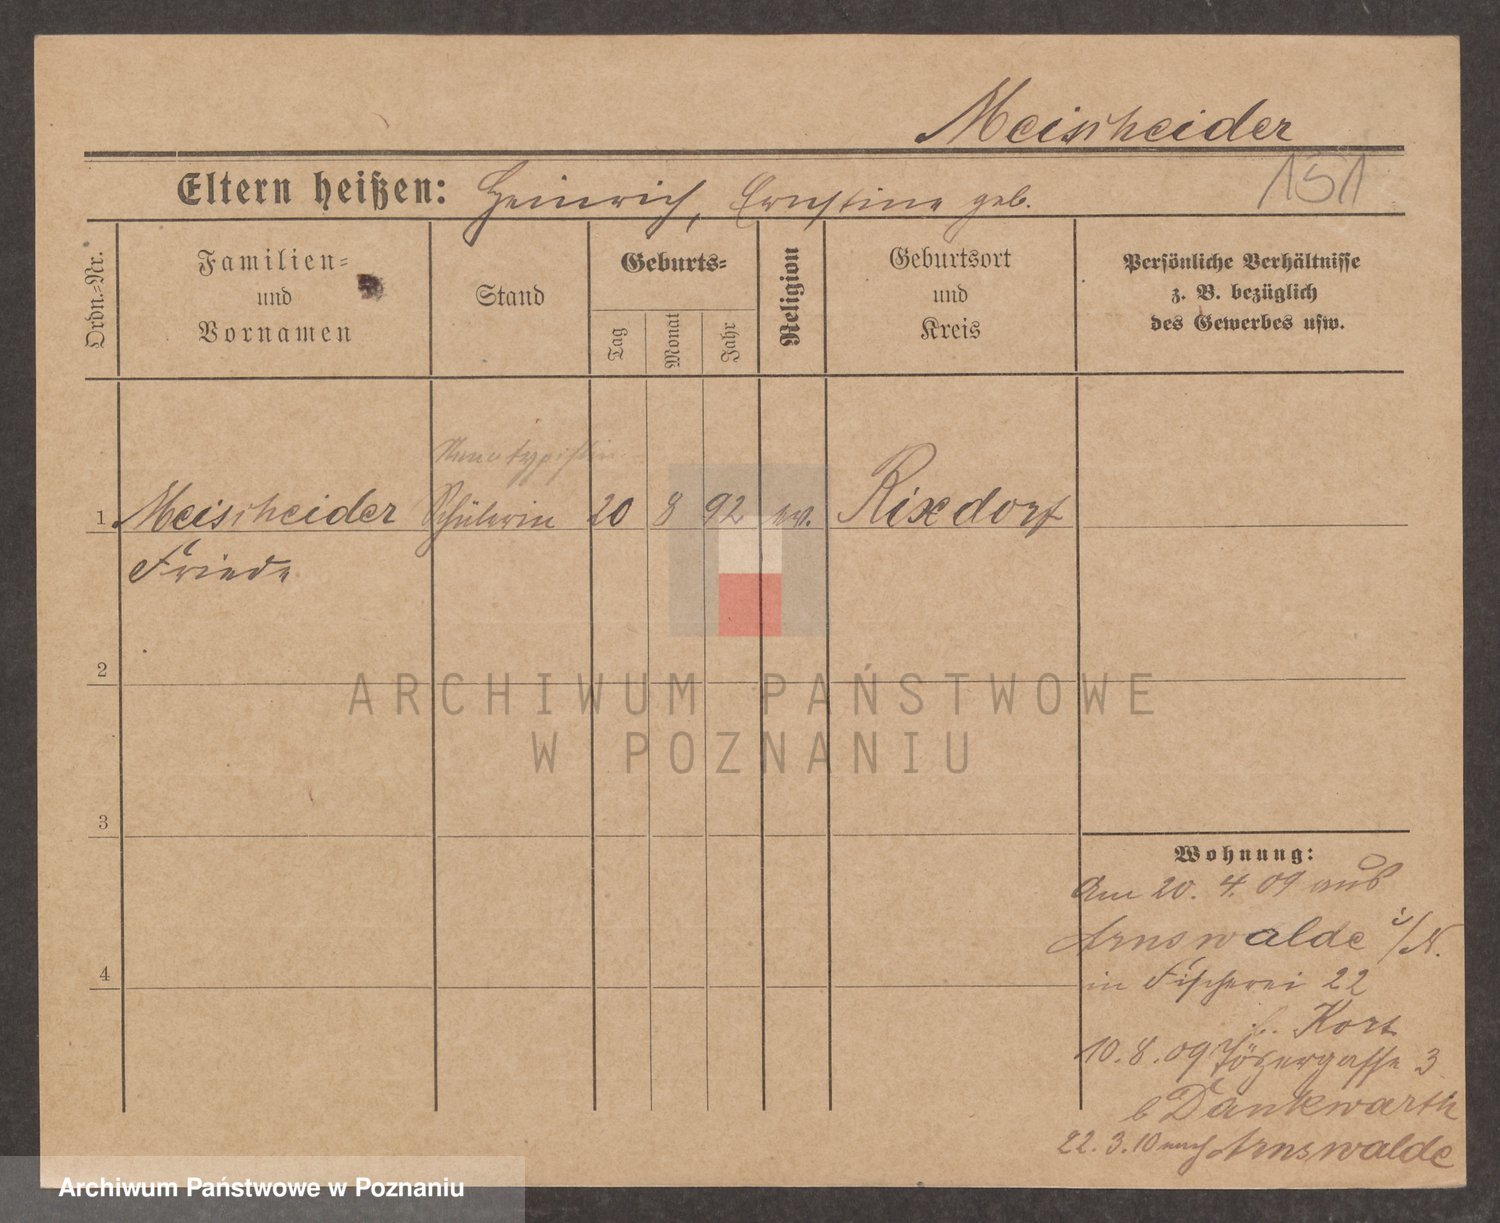 Meischeider
Eltern heißen: Heinrich, Ernstine geb.
151
Ordn.-Nr.
Familien-
und
Vornamen
Stand
Geburts-
Tag
Monat
Jahr
Religion
Geburtsort
und
Kreis
Persönliche Verhältnisse
z. B. bezüglich
des Gewerbes usw.
1 Meischeider Schülerin 20 8 92 ev. Rixdorf
Friede
2
ARCHIWUM PAŃSTWOWE
W POZNANIU
3
Wohnung:
Am 20. 4. 09 aus
Arnswalde i/N.
in Fischerei 22
b. Kort
10. 8. 09 3
b Dankwarth
22. 3. 10 nach Arnswalde
4
Archiwum Państwowe w Poznaniu